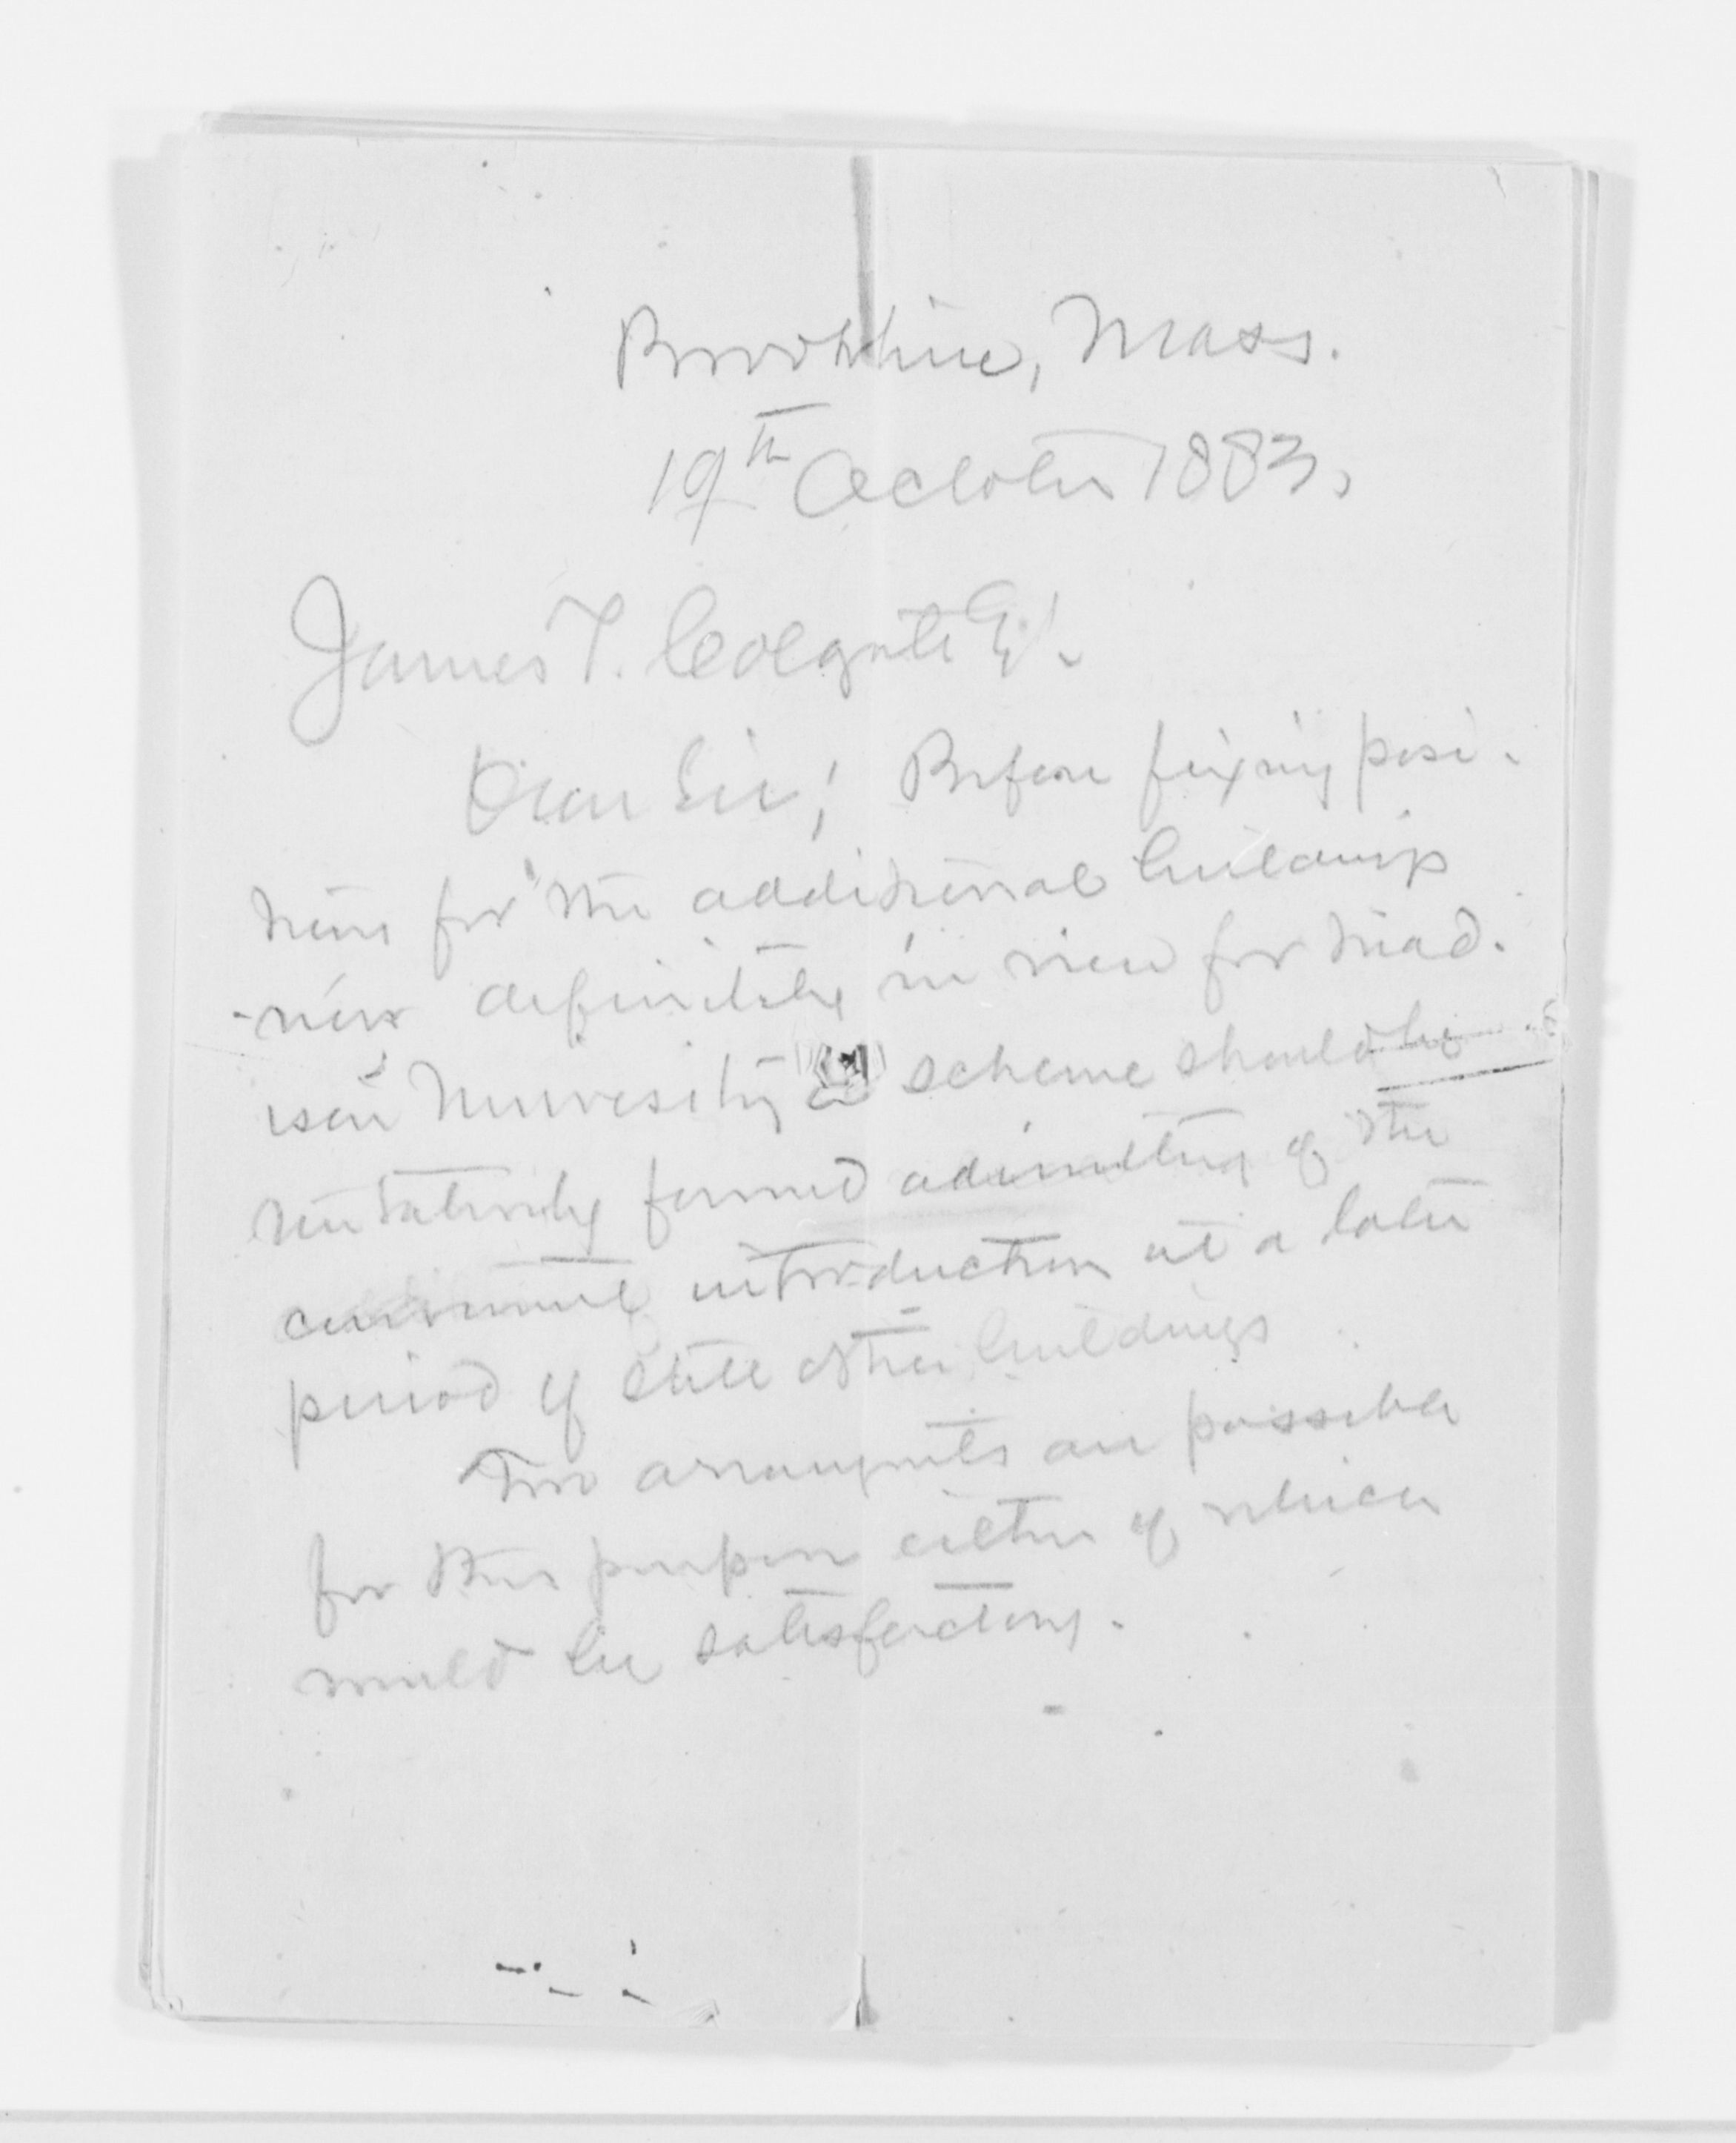 Brookline, Mass.
19th October 1883.
James T. Colgate Esq.
Dear Sir; Before fixing posi-
tions for the additional buildings
now definitely in view for Mad-
ison University a scheme should be
tentatively formed admitting of the
convenient introduction at a later
period of still other buildings
Two arrangements are possible
for this purpose either of which
would be satisfactory.